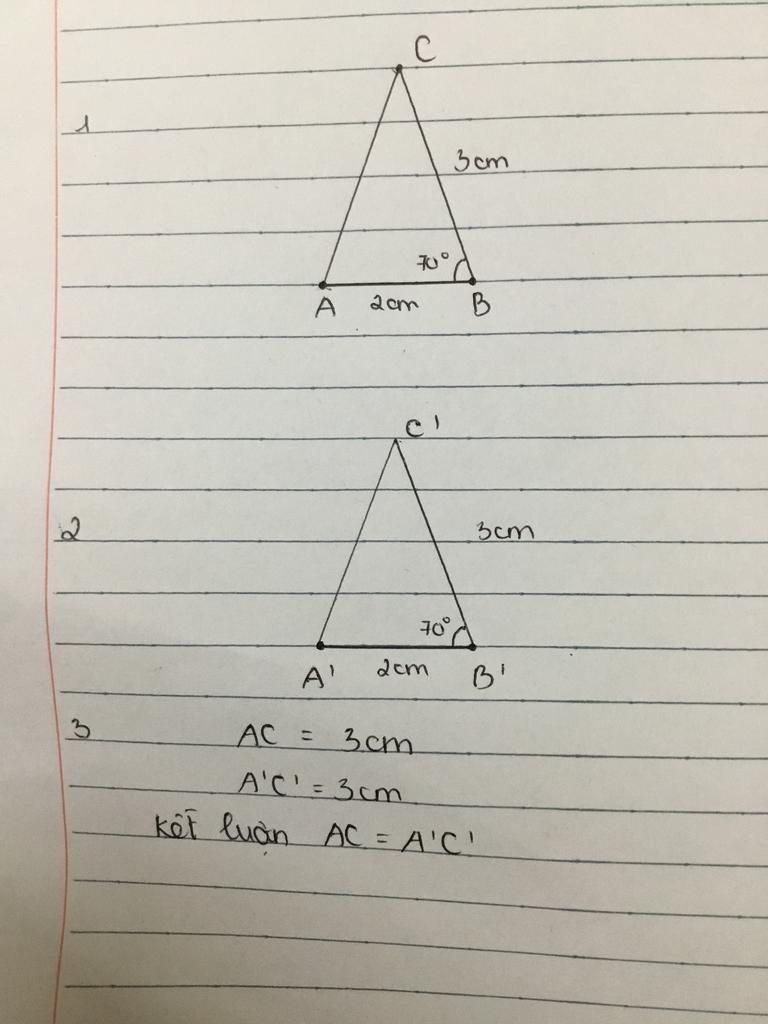 C
1
3cm
70°
A 2cm B
C'
2
3cm
70°
A' 2cm B'
3 AC = 3cm
A'C' = 3cm
Kết luận AC = A'C'